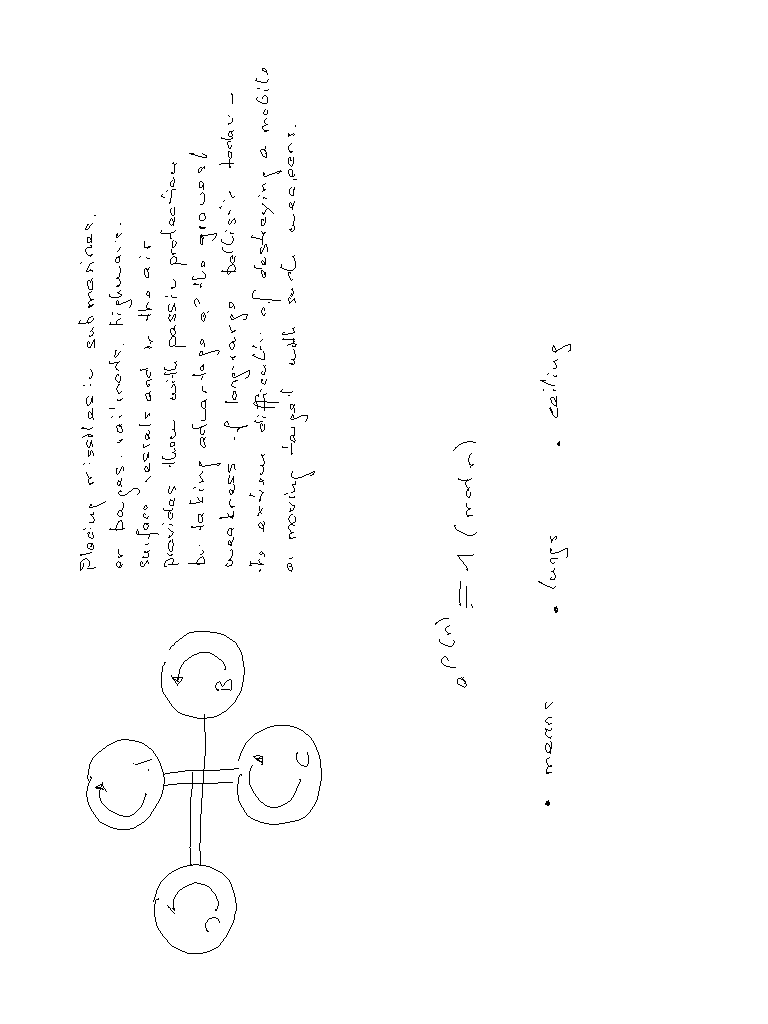 Placing missiles in submarines.
or barges. railroads. highways.
surface vessels and in the air
provides them with passive protection
by taking advantage of the gravest
weakness of long-range ballistic today -
the extreme difficulty of destroying a mobile
or moving target with such weapons.
A
B
C
D
a^φ(n) ≡ 1 (mod n)
• means • lungs • ceiling